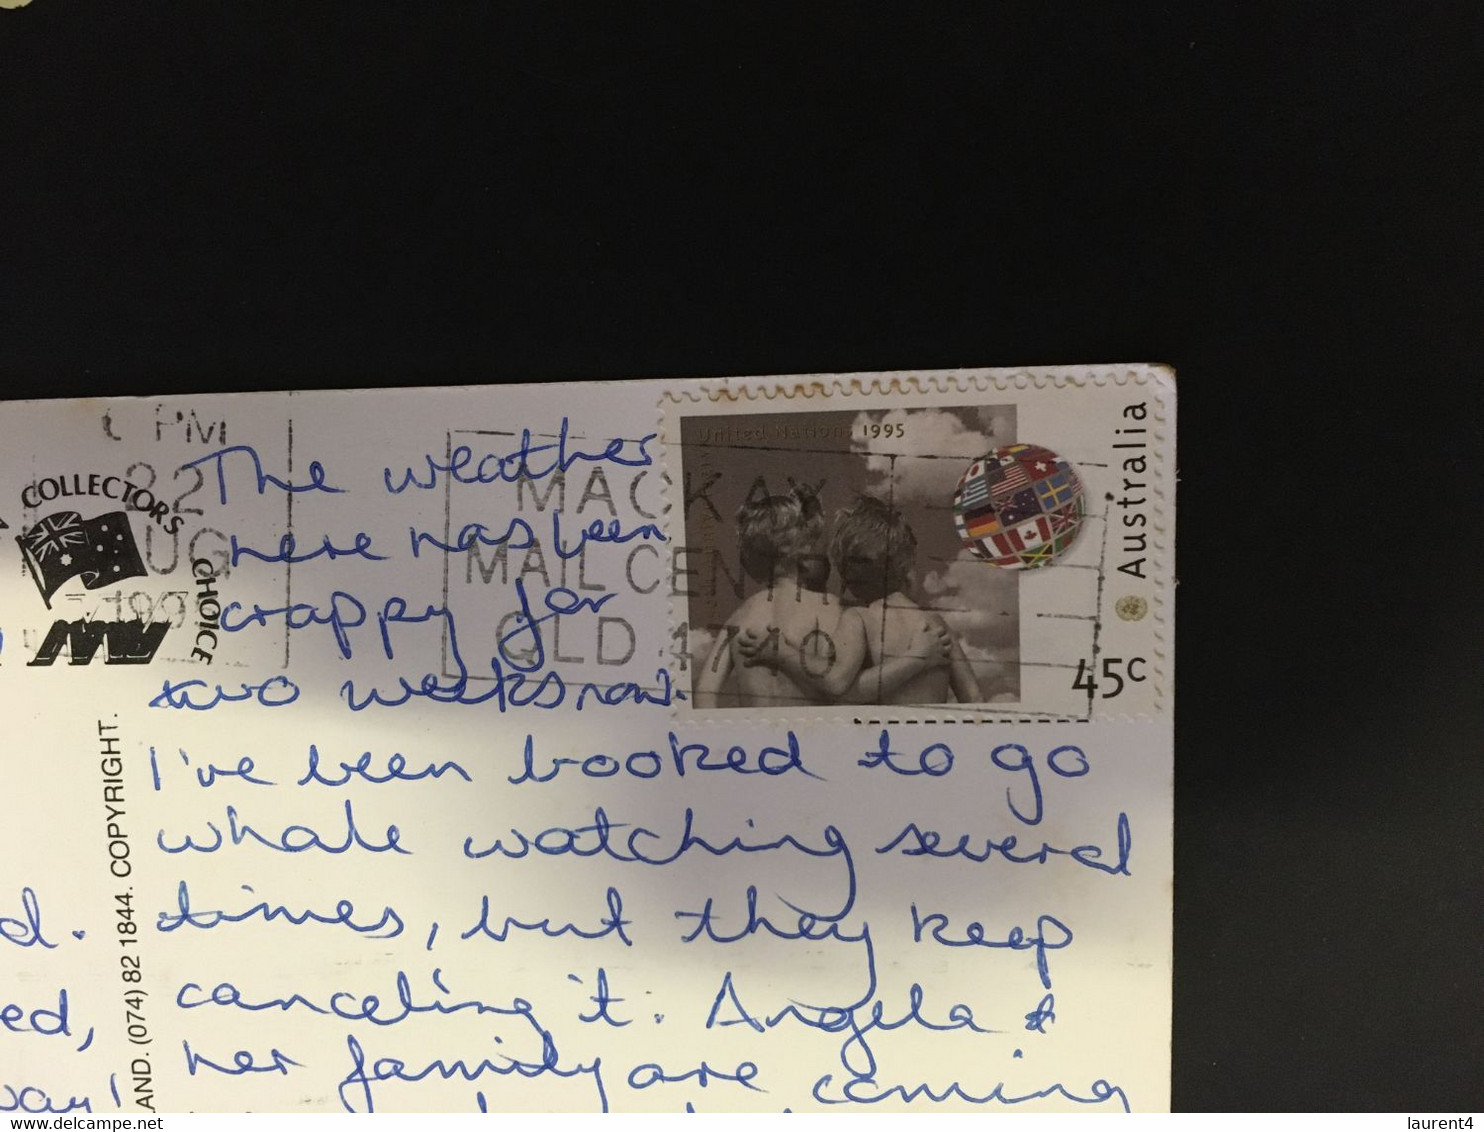 PM
22
COLLECTORS
CHOICE
MACKAY
MAIL CENTRE
QLD 4740
United Nations 1995
Australia
45c
The weather
here has been
crappy for
two weeks now.
I've been booked to go
whale watching several
times, but they keep
canceling it. Angela &
her family are coming
AND. (074) 82 1844. COPYRIGHT.
d.
ed,
way!
www.delcampe.net
laurent4